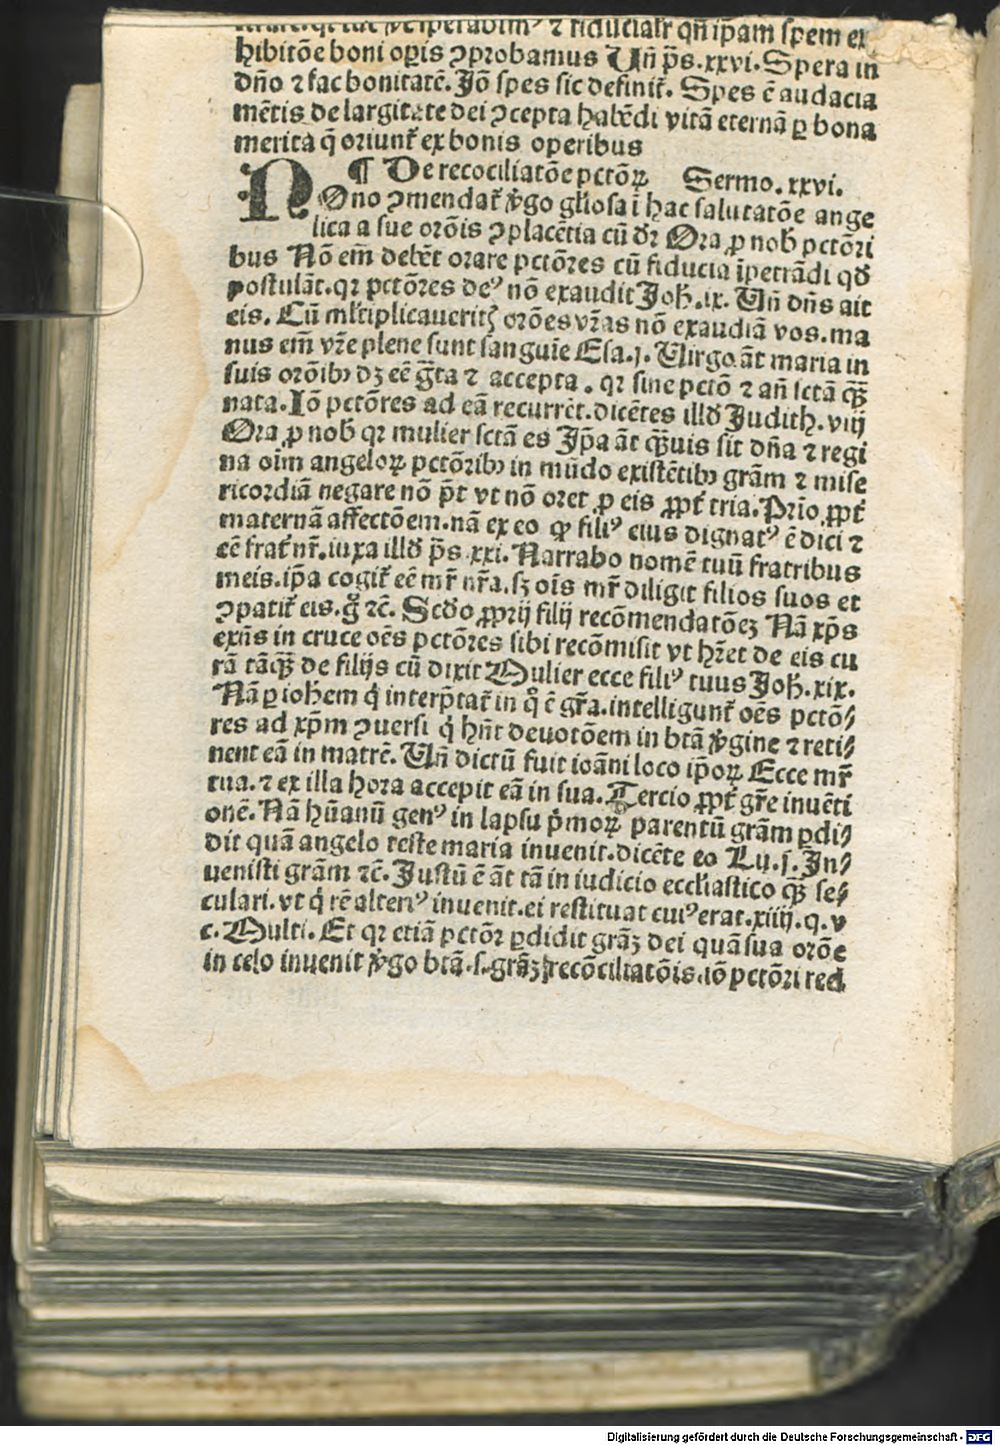 ut speravimꝰ ⁊ fiducialr̃ qñ ip̃am spem ex
hibitōe boni oꝑis ꝯprobamus Uñ p̃s.xxvi.Spera in
dño ⁊ fac bonitatē.Jō spes sic definit̃. Spes ē audacia
mētis de largitate dei ꝯcepta habēdi vitā eternā ꝑ bona
merita q̄ oriunt̃ ex bonis operibus
¶ De recōciliatōe pctōꝝ Sermo.xxvi.
POno ꝯmendat̃ v̊go gl̃iosa ī hac salutatōe ange
lica a sue orōis ꝯplacētia cū dr̃ Ora ꝓ nob̃ pctōri
bus Nō em̄ debēt orare pctōres cū fiducia īpetrādi qd̃
postulāt.qꝛ pctōres deꝰ nō exaudit Joh̃.ix. Uñ dñs ait
eis. Cū ml̃tiplicaueritꝭ orōes vr̃as nō exaudiā vos.ma
nus em̄ vr̃e plene sunt sanguīe Esa.j. Uirgo āt maria in
suis orōibꝰ dꝫ eē gͣta ⁊ accepta . qꝛ sine pctō ⁊ añ sctā qͣꝫ
nata.Iō pctōres ad eā recurrēt.dicētes illd̃ Judith.viij
Ora ꝓ nob̃ qꝛ mulier sctā es Jp̃a āt qͣꝫuis sit dña ⁊ regi
na oīm angeloꝝ pctōribꝰ in mūdo existētibꝰ grām ⁊ mise
ricordiā negare nō p̄t vt nō oret ꝓ eis ꝓpt̃ tria.Prīo ꝓpt̃
maternā affectōem.nā ex eo ꝙ filiꝰ eius dignatꝰ ē dici ⁊
eē frat̃ nr̃.iuxa illd̃ p̄s.xxi.Narrabo nomē tuū fratribus
meis.ip̄a cogit̃ eē mr̃ nr̃a.sꝫ oīs mr̃ diligit filios suos et
ꝯpatit̃ eis.gͦ ⁊c̄. Scd̃o ꝓprij filij recōmendatōeꝫ Nā xp̄s
exñs in cruce oēs pctōres sibi recōmisit vt hr̃et de eis cu
rā tāqͣꝫ de filijs cū dixit Mulier ecce filiꝰ tuus Joh̃.xix.
Nā ꝑ ioh̃em qͥ interp̄tat̃ in qͦ ē gr̄a.intelligunt̃ oēs pctō⸗
res ad xp̄m ꝯuersi qͥ hñt deuotōem in btā v̊gine ⁊ reti⸗
nent eā in matrē. Uñ dictū fuit ioāni loco ip̄oꝝ Ecce mr̃
tua.⁊ ex illa hora accepit eā in sua.Tercio ꝓpt̃ gr̄e inuēti
onē.Nā hūanū genꝰ in lapsu pͥmoꝝ parentū grām ꝑdi⸗
dit quā angelo teste maria inuenit.dicēte eo Lu.j.In⸗
uenisti grām ⁊c̄.Justū ē āt tā in iudicio eccl̃iastico qͣꝫ se⸗
culari.vt qͥ rē alteriꝰ inuenit.ei restituat cuiꝰ erat.xiiij.q.v
c.Multi.Et qꝛ etiā pctōr ꝑdidit grāꝫ dei quā sua orōe
in celo inuenit v̊go btā.s.grāꝫ recōciliatōis.iō pctōri red
Digitalisierung gefördert durch die Deutsche Forschungsgemeinschaft - DFG